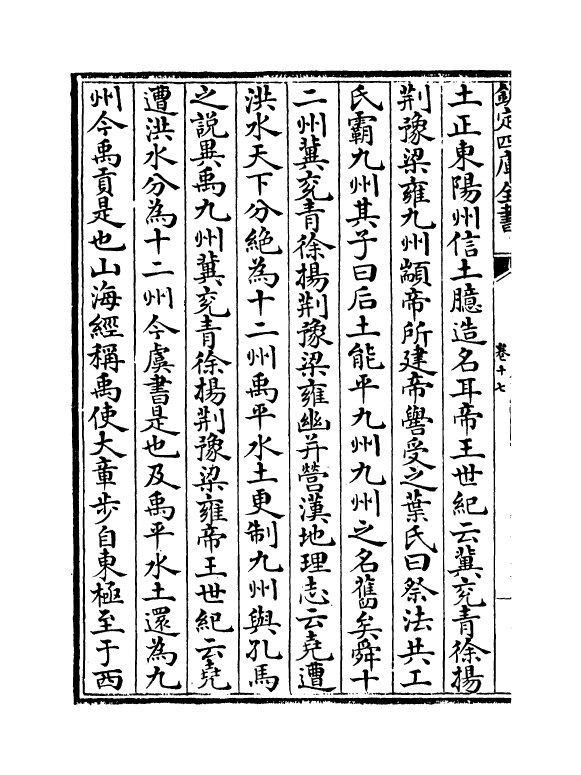 欽定四庫全書
卷十七
土正東陽州信土臆造名耳帝王世紀云冀兖青徐揚
荆豫梁雍九州顓帝所建帝嚳受之葉氏曰祭法共工
氏霸九州其子曰后土能平九州九州之名舊矣舜十
二州冀兖青徐揚荆豫梁雍幽并營漢地理志云堯遭
洪水天下分絶為十二州禹平水土更制九州與孔馬
之說異禹九州冀兖青徐揚荆豫梁雍帝王世紀云堯
遭洪水分為十二州今虞書是也及禹平水土還為九
州今禹貢是也山海經稱禹使大章步自東極至于西